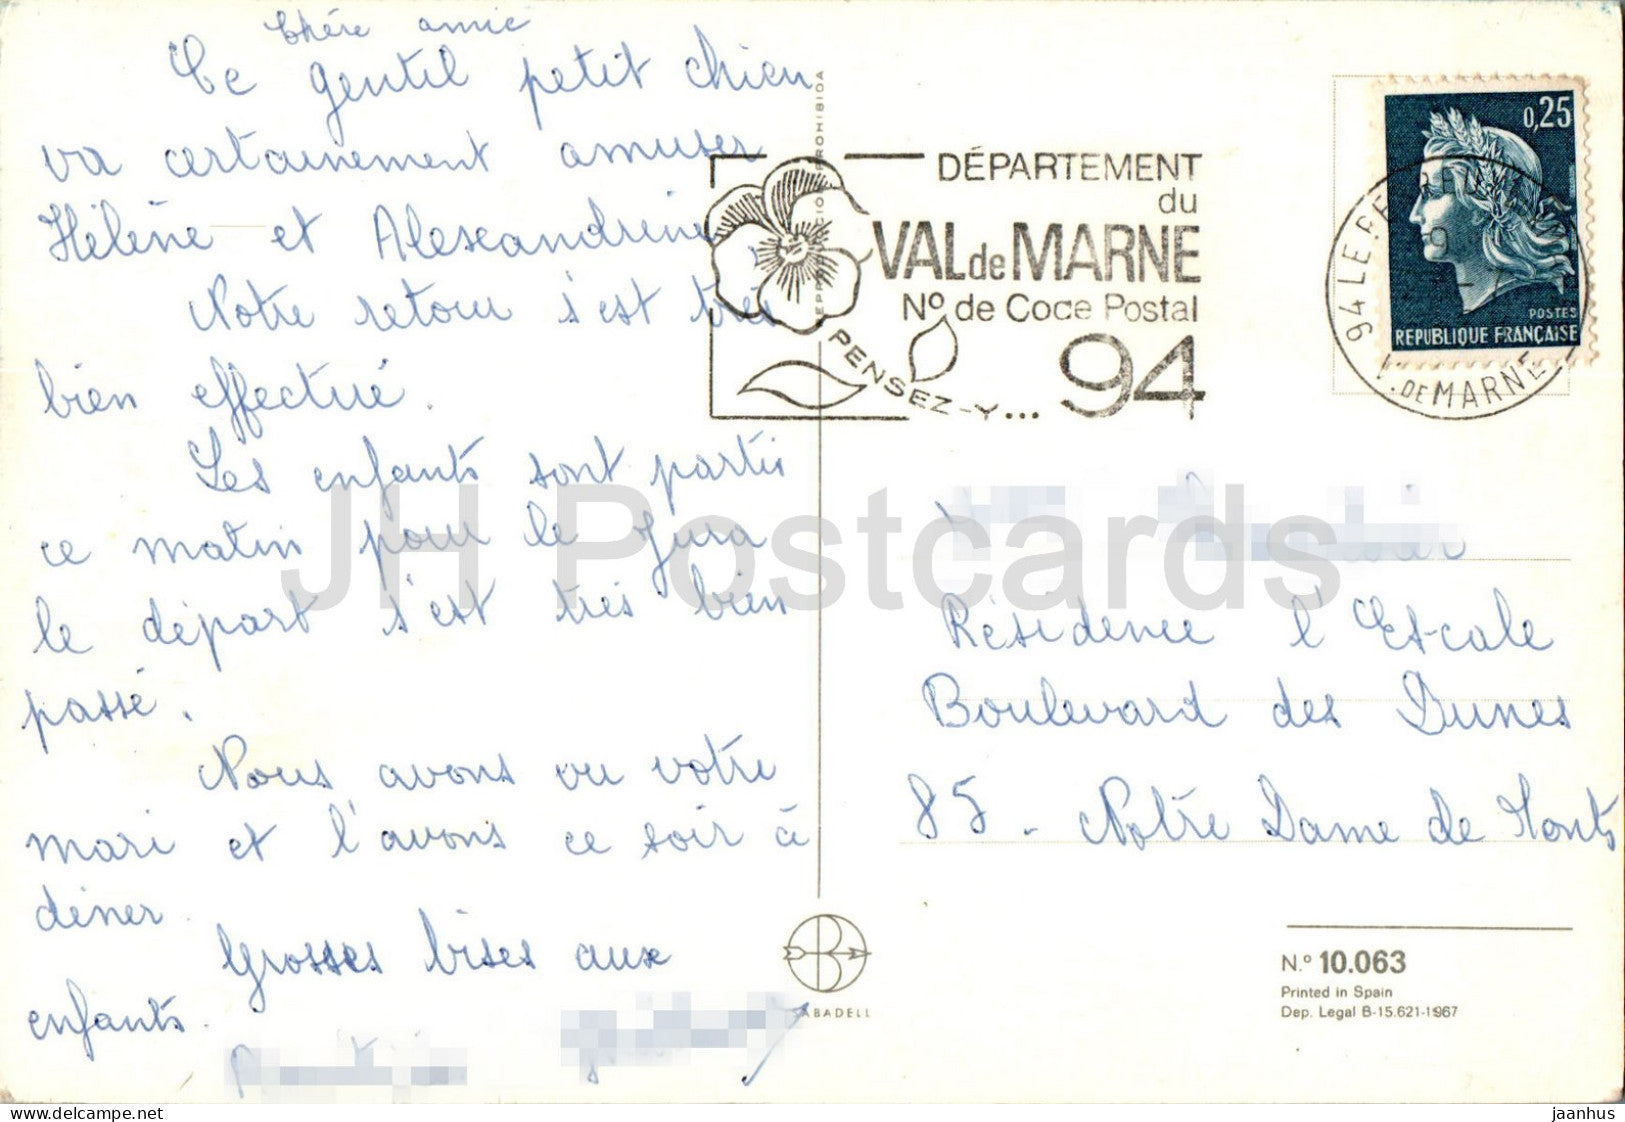 Chère amie
Ce gentil petit chien
va certainement amuser
Hélène et Alexandrine,
Notre retour s'est très
bien effectué.
Les enfants sont partis
ce matin pour le Jura
le départ s'est très bien
passé.
Nous avons vu votre
mari et l'avons ce soir à
dîner
Grosses bises aux
enfants.
PROHIBIDA
DÉPARTEMENT
du
VAL de MARNE
Nº de Code Postal
94
PENSEZ-Y...
0,25
POSTES
REPUBLIQUE FRANÇAISE
94 LE PERREUX
DE MARNE
Résidence l'Escale
Boulevard des Dunes
85 - Notre Dame de Monts
SABADELL
N.º 10.063
Printed in Spain
Dep. Legal B-15.621-1967
JH Postcards
delcampe.net
jaanhus